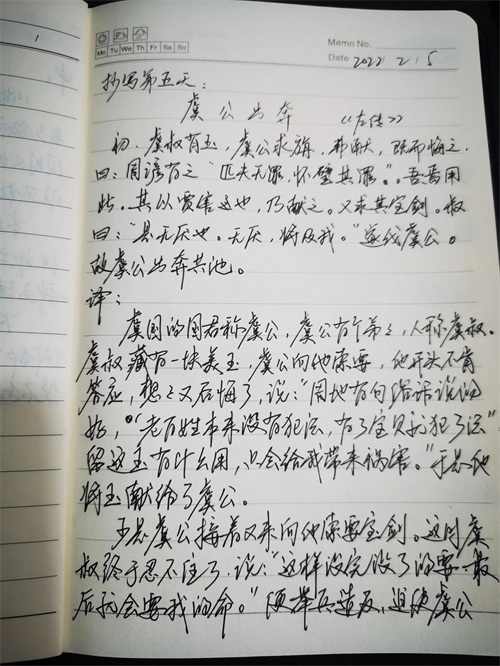 1
Mo Tu We Th Fr Sa Su
Memo No.
Date 2022 2.5
抄写第五天：
虞公出奔 《左传》
初，虞叔有玉，虞公求旃，弗献，既而悔之。
曰：周谚有之“匹夫无罪，怀璧其罪”。吾焉用
此，其以贾害也，乃献之。又求其宝剑。叔
曰：“是无厌也。无厌，将及我。”遂伐虞公。
故虞公出奔共池。
译：
虞国的国君称虞公，虞公有个弟弟，人称虞叔。
虞叔藏有一块美玉，虞公向他索要，他开头不肯
答应，想想又后悔了，说：“周地有句俗话说的
好，“老百姓本来没有犯法，有了宝贝就犯了法”
留这玉有什么用，只会给我带来祸害。”于是他
将玉献给了虞公。
于是虞公接着又来向他索要宝剑。这时虞
叔终于忍不住了，说：“这样没完没了的要，最
后就会要我的命。”便举兵造反，迫使虞公